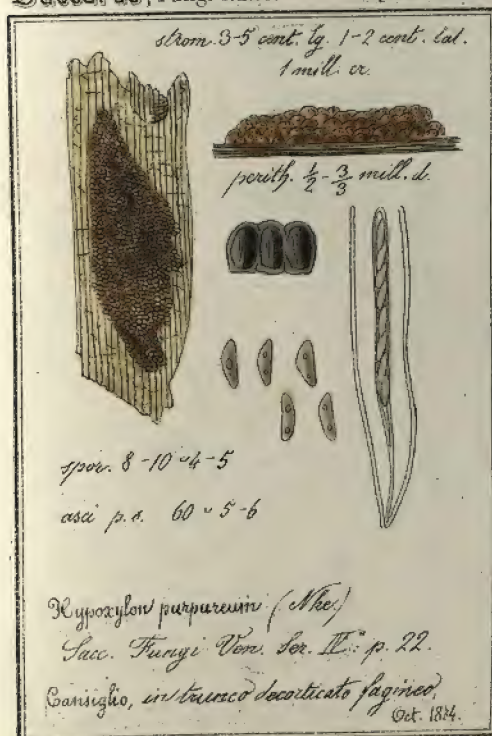 Saccardo, Fungi
strom. 3-5 cent. lg. 1-2 cent. lat.
1 mill. cr.
perith. ½ - 3/3 mill. d.
spor. 8-10 ᵕ 4-5
asci p. s. 60 ᵕ 5-6
Hypoxylon purpureum (Nke.)
Sacc. Fungi Ven. Ser. IV: p. 22.
Cansiglio, in trunco decorticato fagineo,
Oct. 1874.